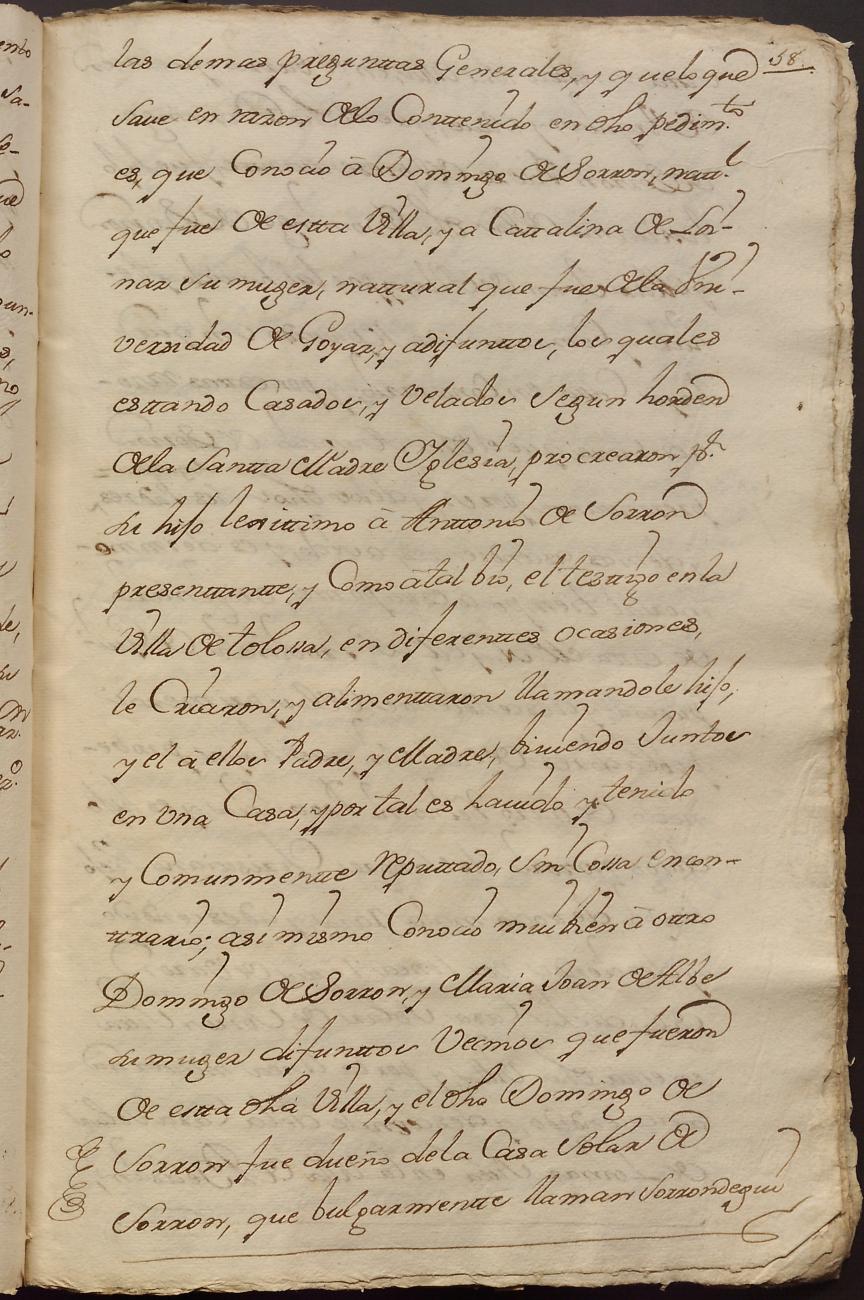 58.
las demas pregunttas Generales, y que lo que
save en razon de lo Conttenido en dho pedimto
es, que Conocio â Domingo de Sorron, nattl
que fue de estta Villa, y a Cattalina de Lor-
nar su muger, nattural que fue de la Vni-
versidad de Goyaz, y adifunttos, los quales
esttando Casados, y Velados segun horden
de la Santta Madre Yglesia, procrearon pr
su hijo lexittimo â Anttonio de Sorron
presenttantte, y Como â tal bio, el testigo en la
Villa de tolossa, en diferenttes ocasiones,
le Criaron, y alimenttaron llamandole hijo,
y el â ellos Padre, y Madre, biuiendo Juntos
en vna Casa, y por tal es hauido y tenido
y Comunmentte Reputtado, sin Cossa encon-
ttrario; asi mismo Conocio mui bien â ottro
Domingo de Sorron, y Maria Joan de Albe
su muger difunttos Vecinos que fueron
de estta dha Villa, y el dho Domingo de
Sorron fue dueño de la Casa Solar de
Sorron, que bulgarmentte llaman Sorrondegui